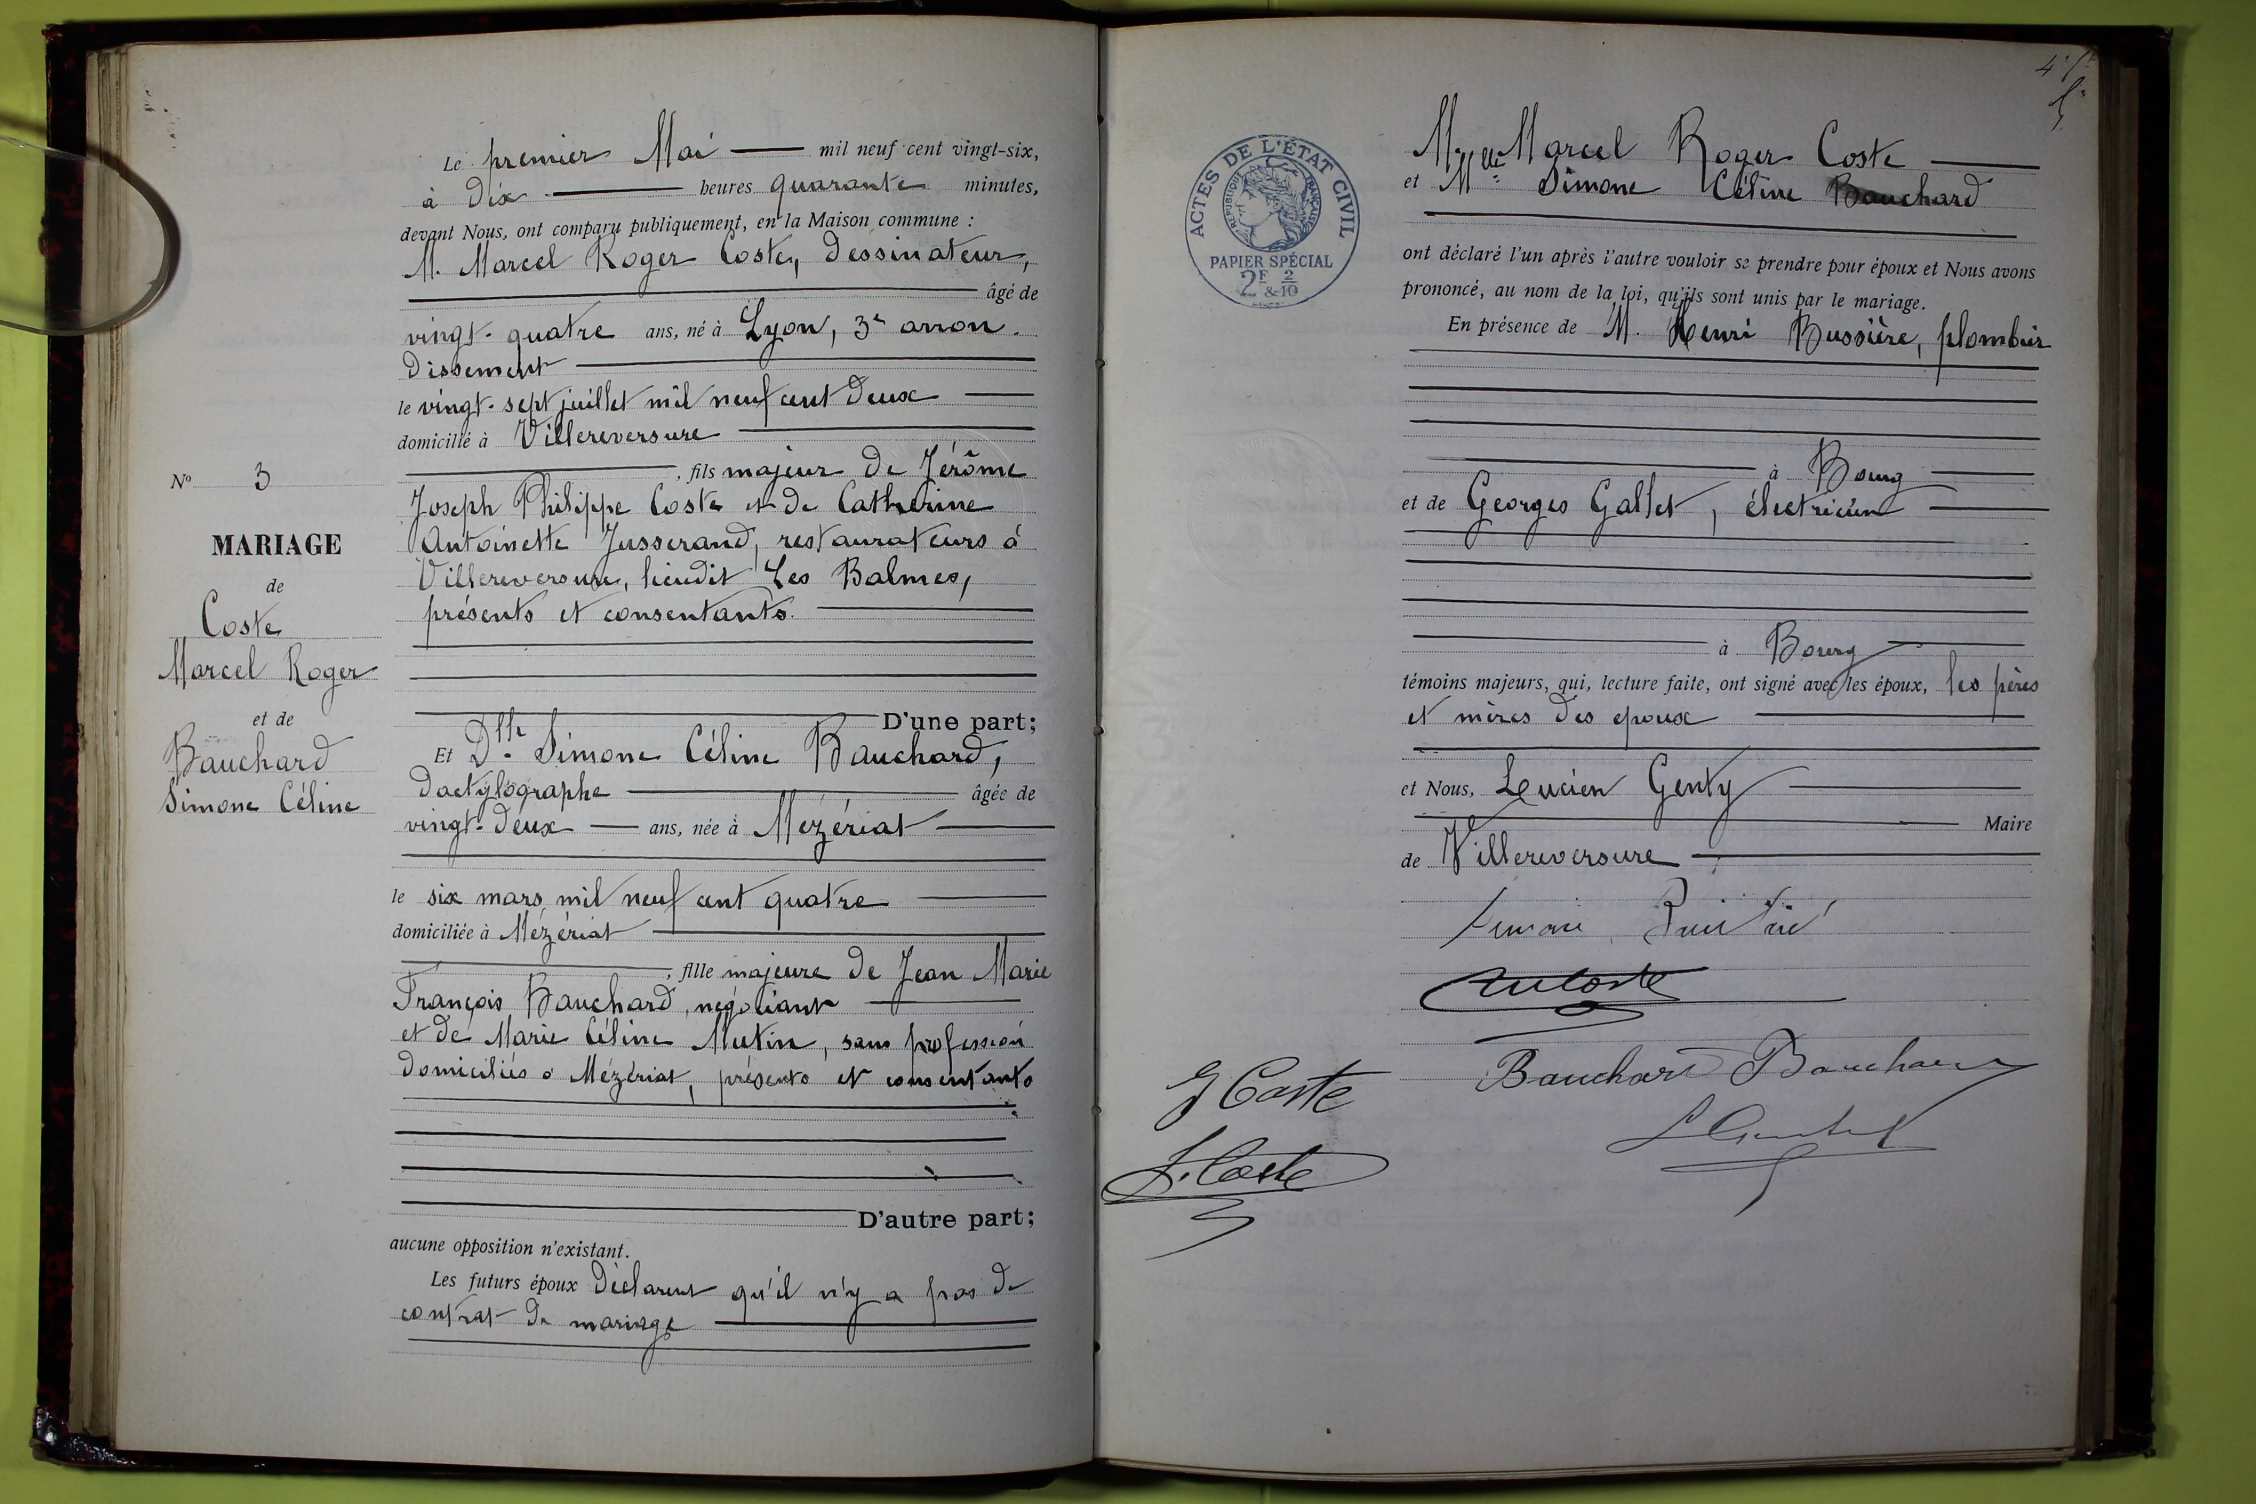 Le premier Mai mil neuf cent vingt-six,
à dix heures quarante minutes,
devant Nous, ont comparu publiquement, en la Maison commune :
M. Marcel Roger Coste, dessinateur,
âgé de
vingt-quatre ans, né à Lyon, 3e arron-
dissement
le vingt-sept juillet mil neuf cent deux
domicilié à Villereversure
, fils majeur de Jérôme
Joseph Philippe Coste et de Catherine
Antoinette Jusserand, restaurateurs à
Villereversure, lieudit Les Balmes,
présents et consentants.
D'une part;
Et Dlle Simone Céline Bauchard,
dactylographe âgée de
vingt-deux ans, née à Mézériat
le six mars mil neuf cent quatre
domiciliée à Mézériat
, fille majeure de Jean Marie
François Bauchard, négociant
et de Marie Céline Mutin, sans profession
domiciliés à Mézériat, présents et consentants
D'autre part;
aucune opposition n'existant.
Les futurs époux déclarent qu'il n'y a pas de
contrat de mariage
No 3
MARIAGE
de
Coste
Marcel Roger
et de
Bauchard
Simone Céline
ACTES DE L'ÉTAT CIVIL
RÉPUBLIQUE FRANÇAISE
PAPIER SPÉCIAL
2F & 2/10
M. Marcel Roger Coste
et Mlle Simone Céline Bauchard
ont déclaré l'un après l'autre vouloir se prendre pour époux et Nous avons
prononcé, au nom de la loi, qu'ils sont unis par le mariage.
En présence de M. Henri Bussière, plombier
à Bourg
et de Georges Gallet, électricien
à Bourg
témoins majeurs, qui, lecture faite, ont signé avec les époux, les pères
et mères des epoux
et Nous, Lucien Genty
Maire
de Villereversure
Bauchard Bauchard
G Coste
J. Coste